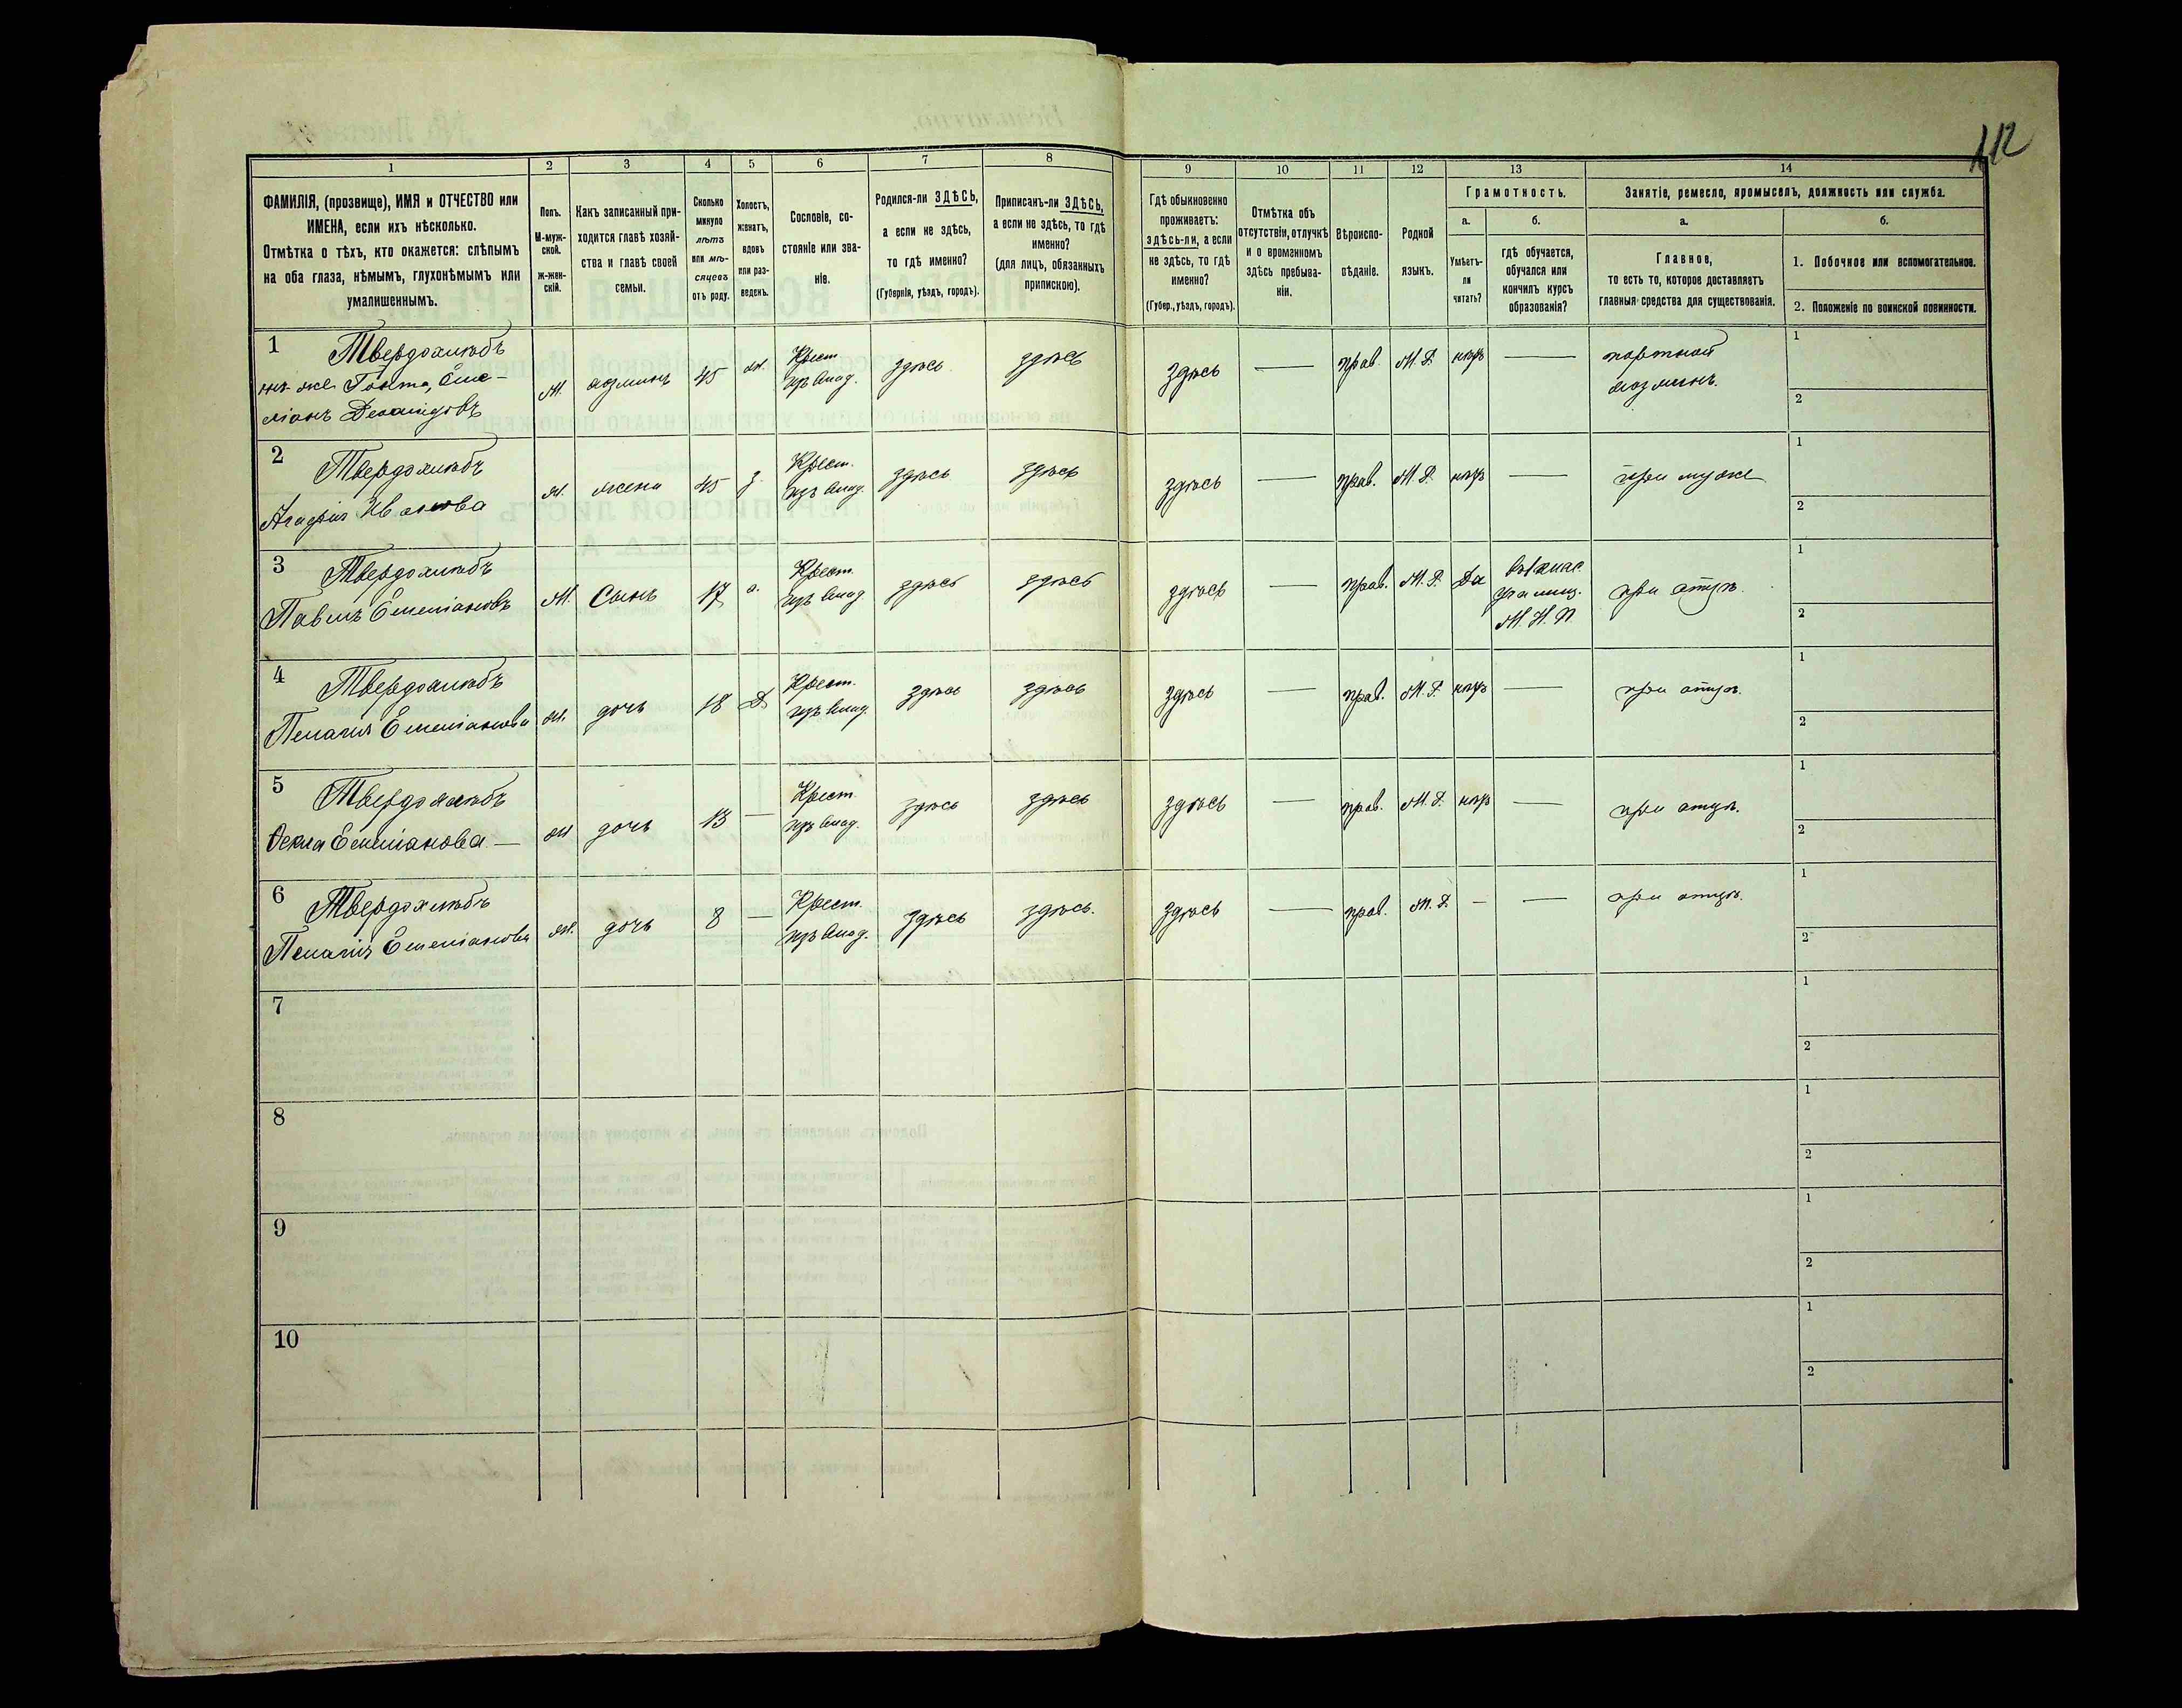 112
1
2
3
4
5
6
7
8
9
10
11
12
13
14
ФАМИЛІЯ, (прозвище), ИМЯ и ОТЧЕСТВО или
ИМЕНА, если ихъ нѣсколько.
Отмѣтка о тѣхъ, кто окажется: слѣпымъ
на оба глаза, нѣмымъ, глухонѣмымъ или
умалишеннымъ.
Полъ.
М-муж-
ской.
ж-жен-
скій.
Какъ записанный при-
ходится главѣ хозяй-
ства и главѣ своей
семьи.
Сколько
минуло
лѣтъ
или мѣ-
сяцевъ
отъ роду.
Холостъ,
женатъ,
вдовъ
или раз-
веденъ.
Сословіе, со-
стояніе или зва-
ніе.
Родился-ли ЗДѢСЬ,
а если не здѣсь,
то гдѣ именно?
(Губернія, уѣздъ, городъ).
Приписанъ-ли ЗДѢСЬ,
а если не здѣсь, то гдѣ
именно?
(для лицъ, обязанныхъ
припискою).
Гдѣ обыкновенно
проживаетъ:
здѣсь-ли, а если
не здѣсь, то гдѣ
именно?
(Губер., уѣздъ, городъ).
Отмѣтка объ
отсутствіи, отлучкѣ
и о временномъ
здѣсь пребыва-
ніи.
Вѣроиспо-
вѣданіе.
Родной
языкъ.
Грамотность.
а.
б.
Умѣетъ-
ли
читать?
гдѣ обучается,
обучался или
кончилъ курсъ
образованія?
Занятіе, ремесло, промыселъ, должность или служба.
а.
б.
Главное,
то есть то, которое доставляетъ
главныя средства для существованія.
1. Побочное или вспомогательное.
2. Положеніе по воинской повинности.
1 Твердохлѣбъ
Еме-
ліанъ
М. хозяинъ 45 ж. Крест. изъ влад. здѣсь здѣсь здѣсь — прав. М. Р. нѣтъ — портной хозяинъ. 1 2
2 Твердохлѣбъ
Агафія Иванова
ж. жена 45 з. Крест. изъ влад. здѣсь здѣсь здѣсь — прав. М. Р. нѣтъ — при мужѣ 1 2
3 Твердохлѣбъ
Павелъ Емеліановъ
М. Сынъ 17 х. Крест. изъ влад здѣсь здѣсь здѣсь — прав. М. Р. Да М. Н. П. при отцѣ. 1 2
4 Твердохлѣбъ
Пелагія Емеліанова
ж. дочь 18 Д Крест. изъ влад. здѣсь здѣсь здѣсь — прав. М. Р. нѣтъ — при отцѣ. 1 2
5 Твердохлѣбъ
Ѳекла Емеліанова —
ж дочь 13 — Крест. изъ влад. здѣсь здѣсь здѣсь — прав. М. Р. нѣтъ — при отцѣ. 1 2
6 Твердохлѣбъ
Пелагія Емеліанова
ж. дочь 8 — Крест. изъ влад. здѣсь здѣсь. здѣсь — прав. М. Р. — — при отцѣ. 1 2
7 1 2
8 1 2
9 1 2
10 1 2